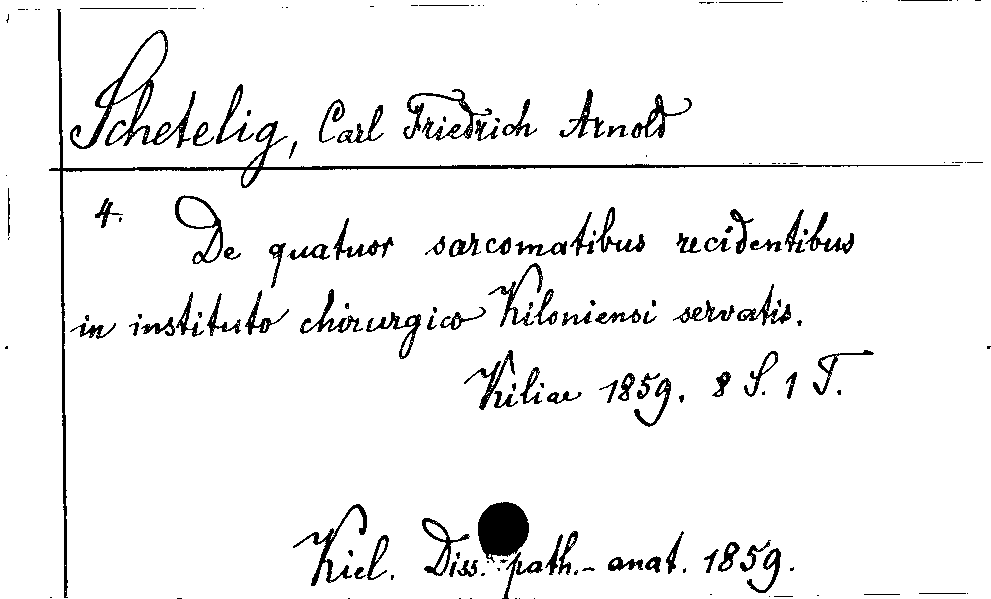 Schetelig, Carl Friedrich Arnold
4. De quatuor sarcomatibus recidentibus
in instituto chirurgico Kiloniensi servatis.
Kiliae 1859. 8 S. 1 T.
Kiel. Diss. path.-anat. 1859.